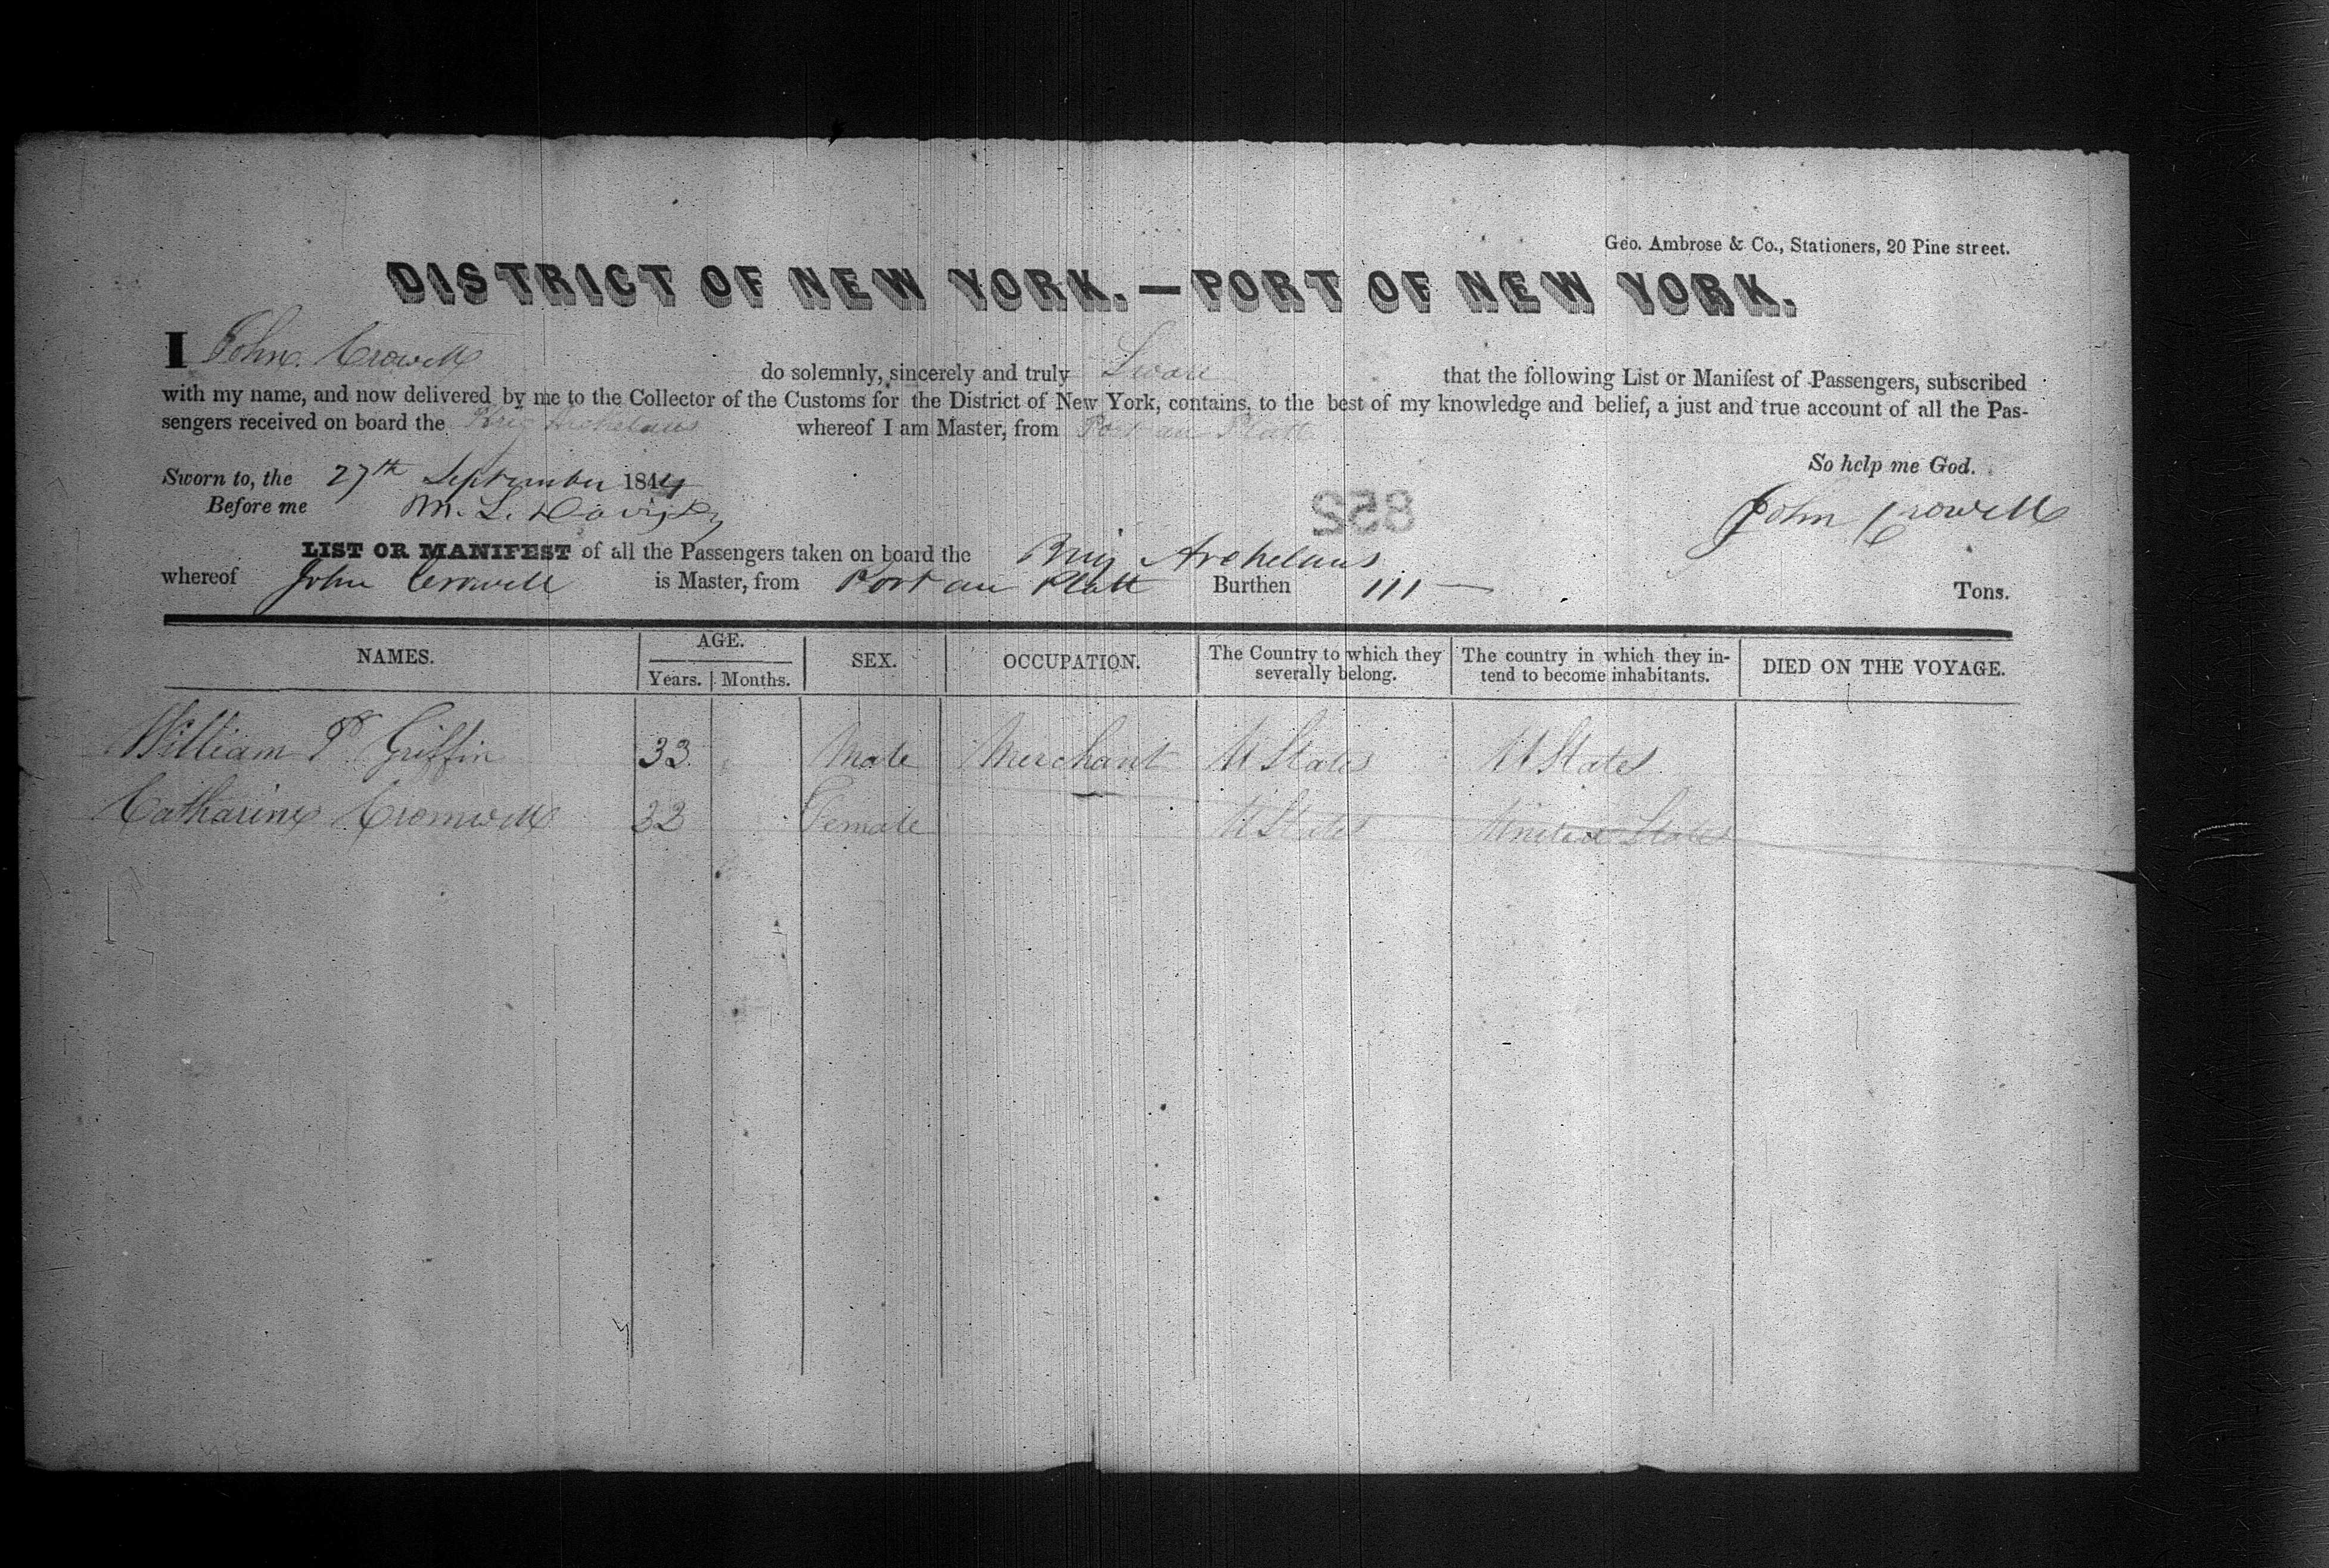 Geo. Ambrose & Co., Stationers, 20 Pine street.
DISTRICT OF NEW YORK.—PORT OF NEW YORK.
I John Crowell do solemnly, sincerely and truly Swear that the following List or Manifest of Passengers, subscribed
with my name, and now delivered by me to the Collector of the Customs for the District of New York, contains, to the best of my knowledge and belief, a just and true account of all the Pas-
sengers received on board the Brig Archelaus whereof I am Master, from Port au Platt
So help me God.
Sworn to, the 27th September 1844
Before me M. L. Davis
John Crowell
852
LIST OR MANIFEST of all the Passengers taken on board the Brig Archelaus
whereof John Crowell is Master, from Port au Platt Burthen 111 — Tons.
NAMES. AGE. Years. Months. SEX. OCCUPATION. The Country to which they severally belong. The country in which they in-tend to become inhabitants. DIED ON THE VOYAGE.
William P Griffin 33 Male Merchant U States U States
Catharine Cromwell 32 Female U States United States